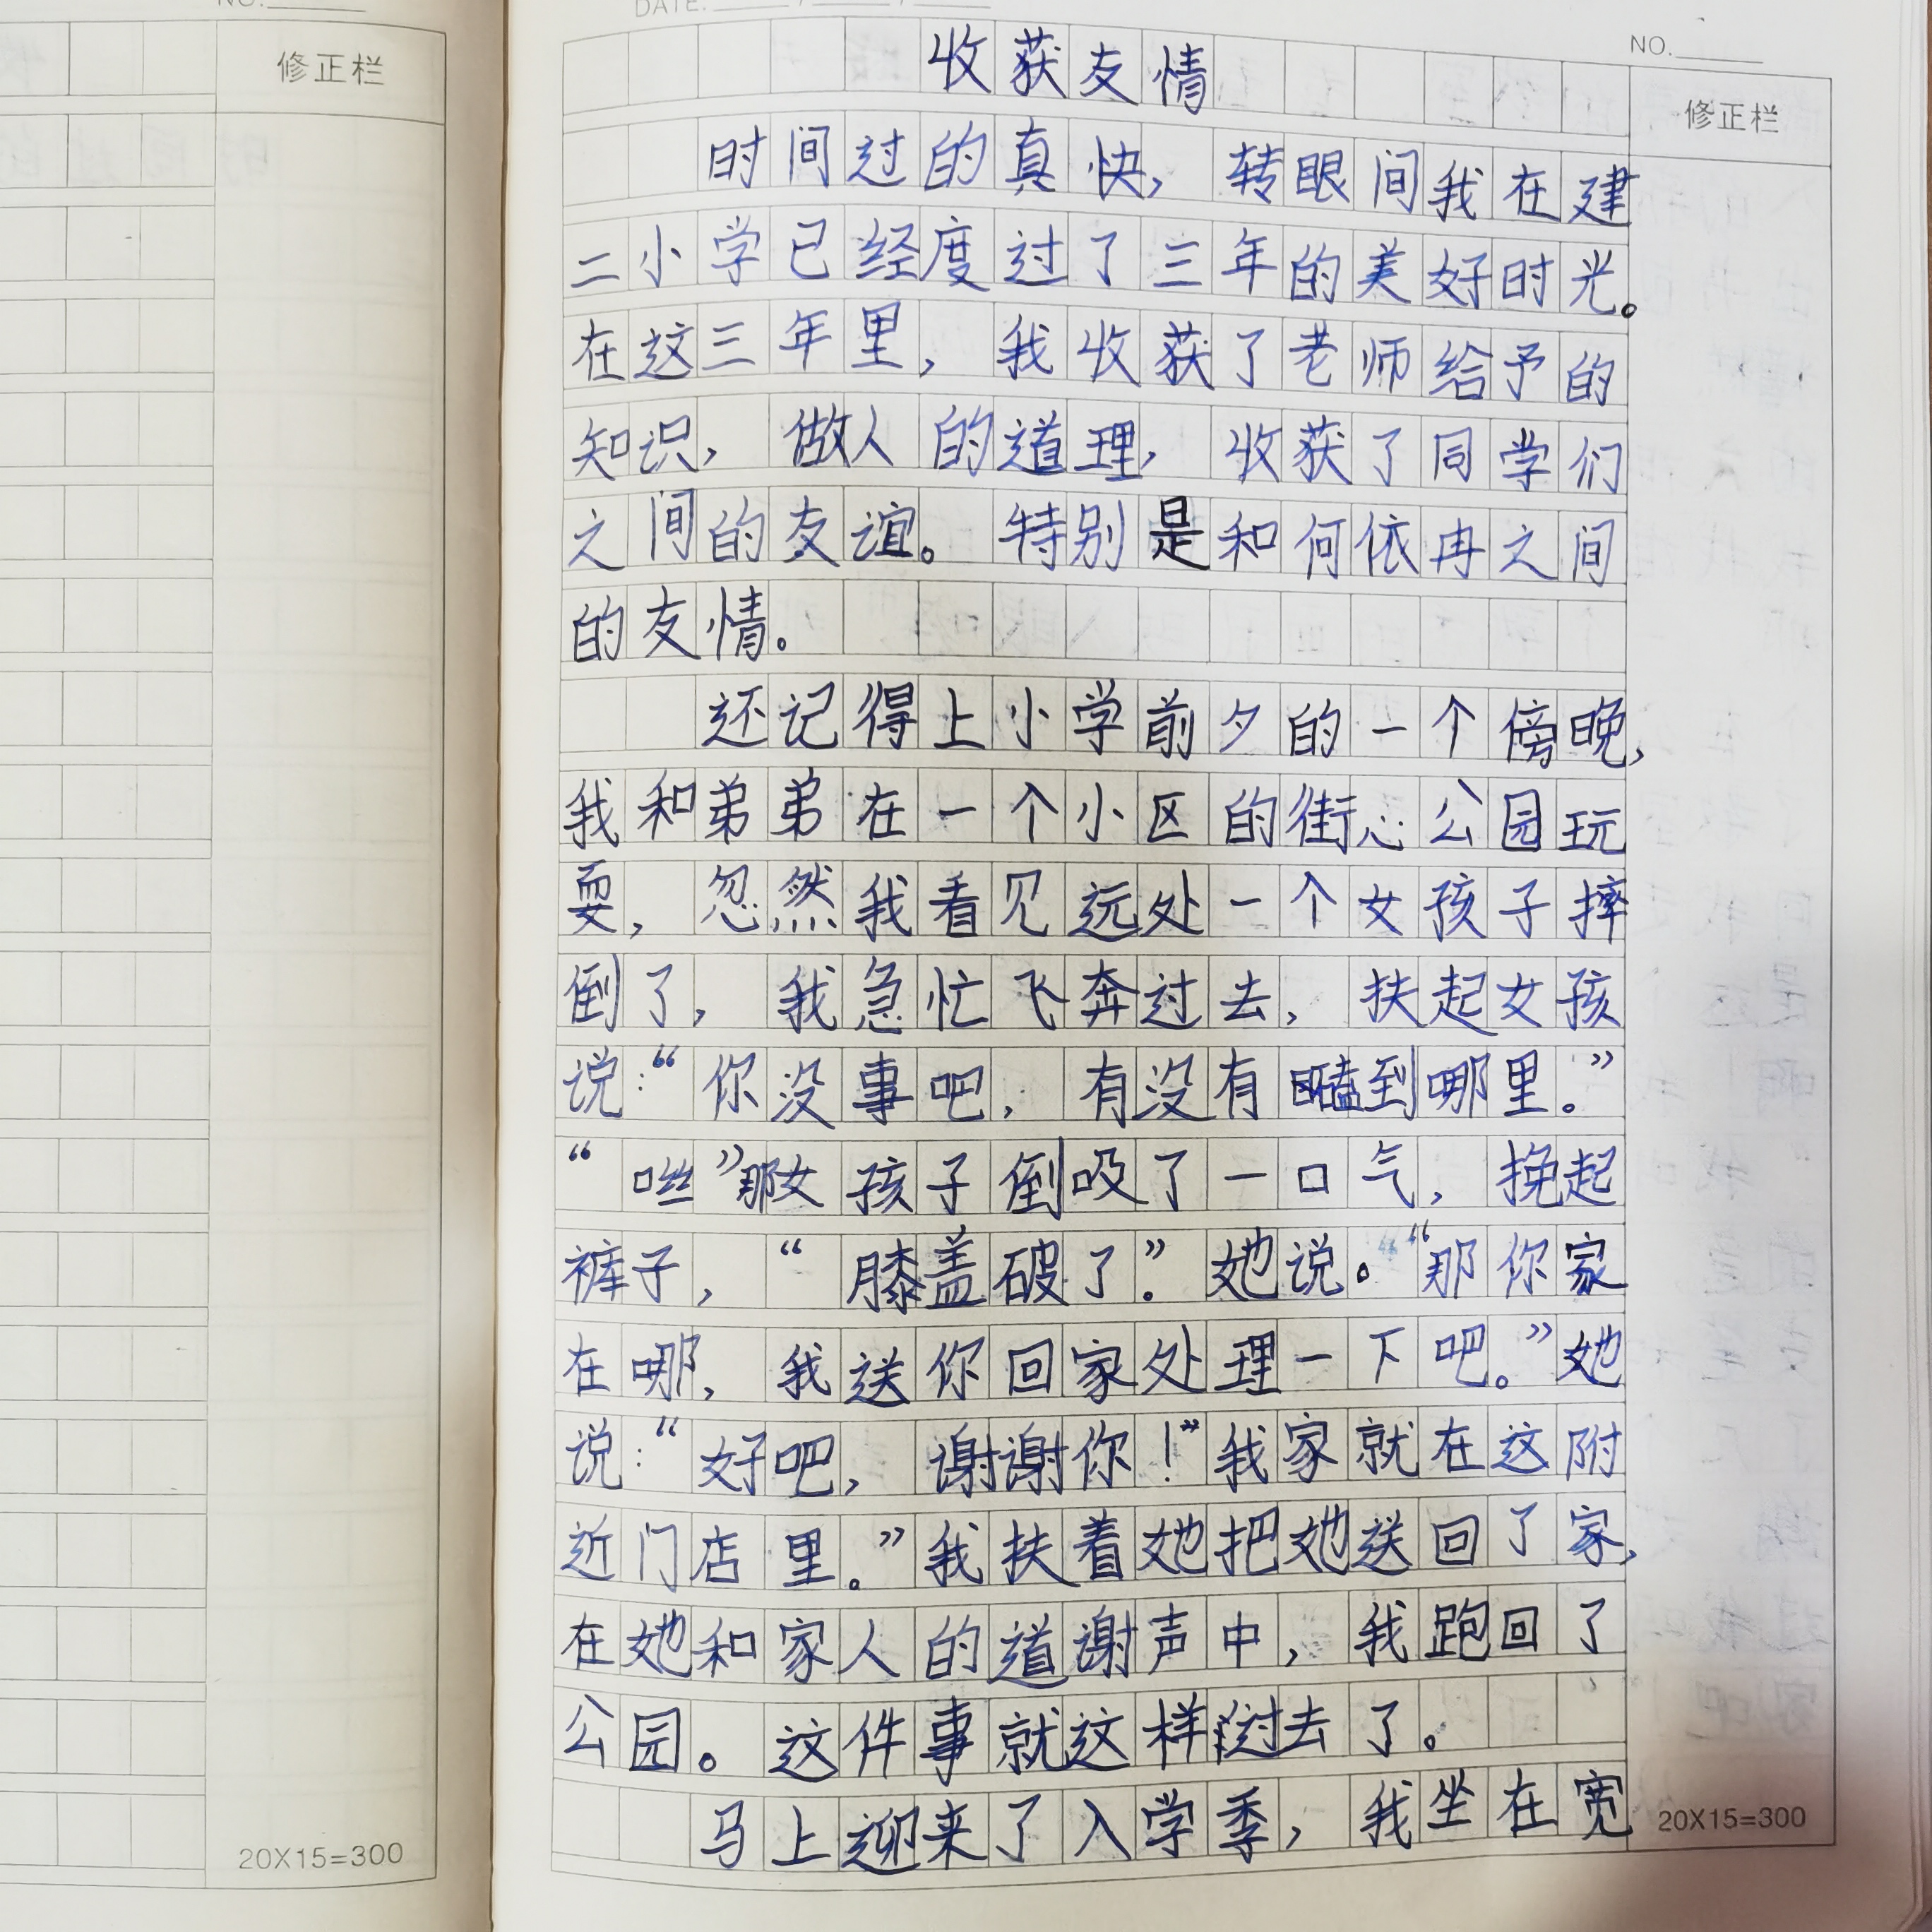 NO.
修正栏
20X15=300
DATE. / /
NO.
修正栏
收获友情
时间过的真快，转眼间我在建
二小学已经度过了三年的美好时光。
在这三年里，我收获了老师给予的
知识，做人的道理，收获了同学们
之间的友谊。特别是和何依冉之间
的友情。
还记得上小学前夕的一个傍晚，
我和弟弟在一个小区的街心公园玩
耍，忽然我看见远处一个女孩子摔
倒了，我急忙飞奔过去，扶起女孩
说：“你没事吧，有没有瞌到哪里。”
“咝”那女孩子倒吸了一口气，挽起
裤子，“膝盖破了”。她说。“那你家
在哪，我送你回家处理一下吧。”她
说：“好吧，谢谢你！”我家就在这附
近门店里。”我扶着她把她送回了家，
在她和家人的道谢声中，我跑回了
公园。这件事就这样过去了。
马上迎来了入学季，我坐在宽
20X15=300